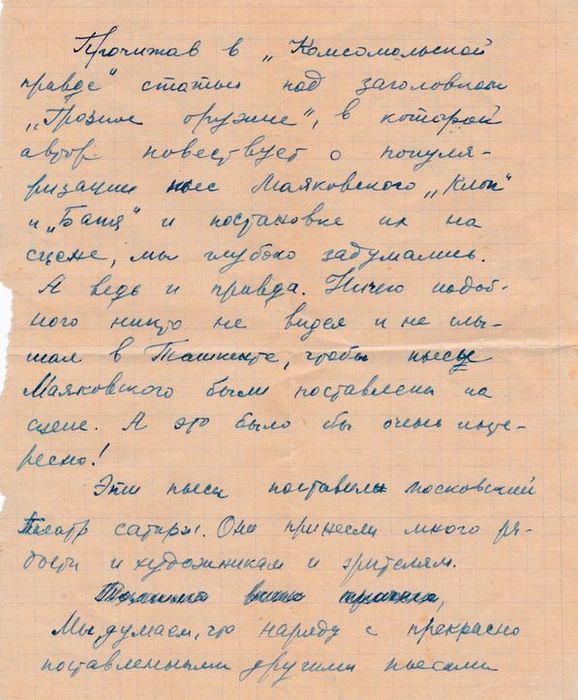 Прочитав в „Комсомольской
правде“ статью под заголовком
„Грозное оружие“, в которой
автор повествует о популя-
ризации пьес Маяковского „Клоп“
и „Баня“ и постановке их на
сцене, мы глубоко задумались.
А ведь и правда. Ничего подоб-
ного никто не видел и не слы-
шал в Ташкенте, чтобы пьесы
Маяковского были поставлены на
сцене. А это было бы очень инте-
ресно!
Эти пьесы поставил московский
театр сатиры. Они принесли много ра-
дости и художникам и зрителям.
Мы думаем, что наряду с прекрасно
поставленными другими пьесами